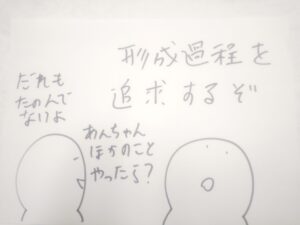 形成過程を
追求するぞ
だれも
たのんで
ないよ
あんちゃん
ほかのこと
やったら？